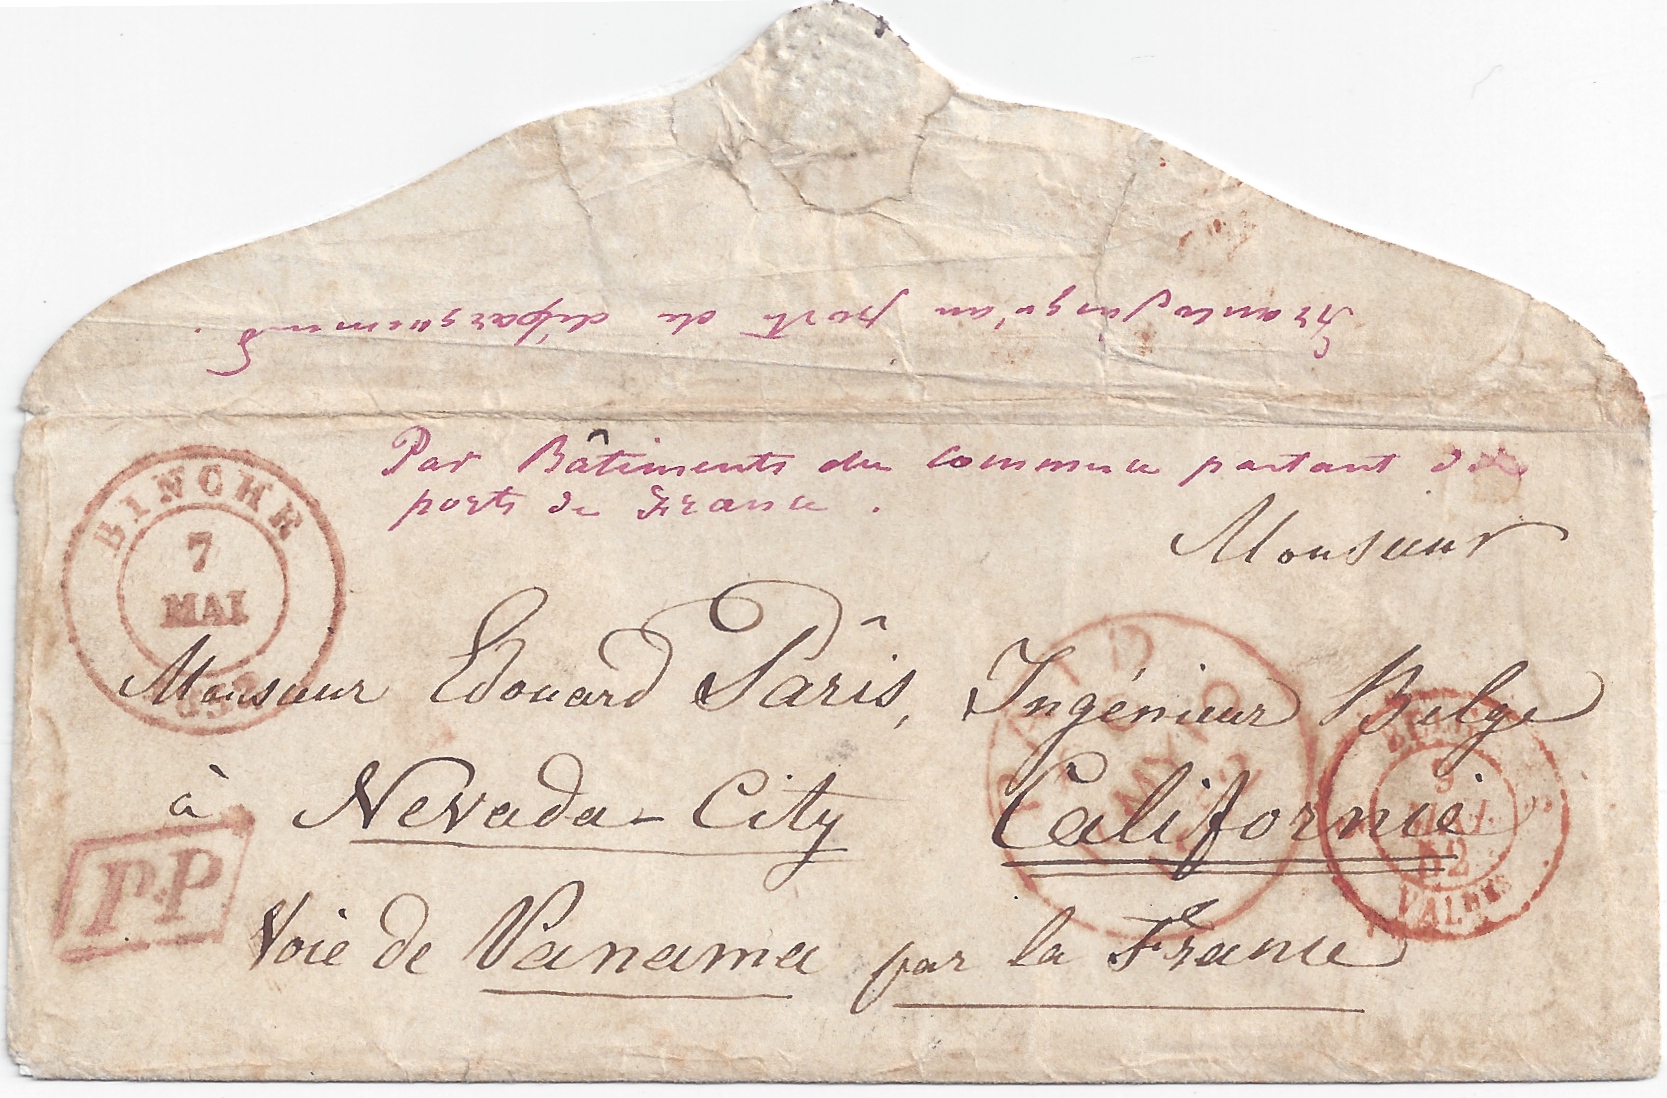 franco jusqu'au port de déparquement.
Par Bâtiments du commerce partant des
ports de France.
BINCHE
7
MAI
1852
Monsieur
Monsieur Edouard Pâris, Ingénieur Belge
à Nevada-City Californie
Voie de Panama par la France
P.P
PAID
MY 10
9
MAI
52
VALNES